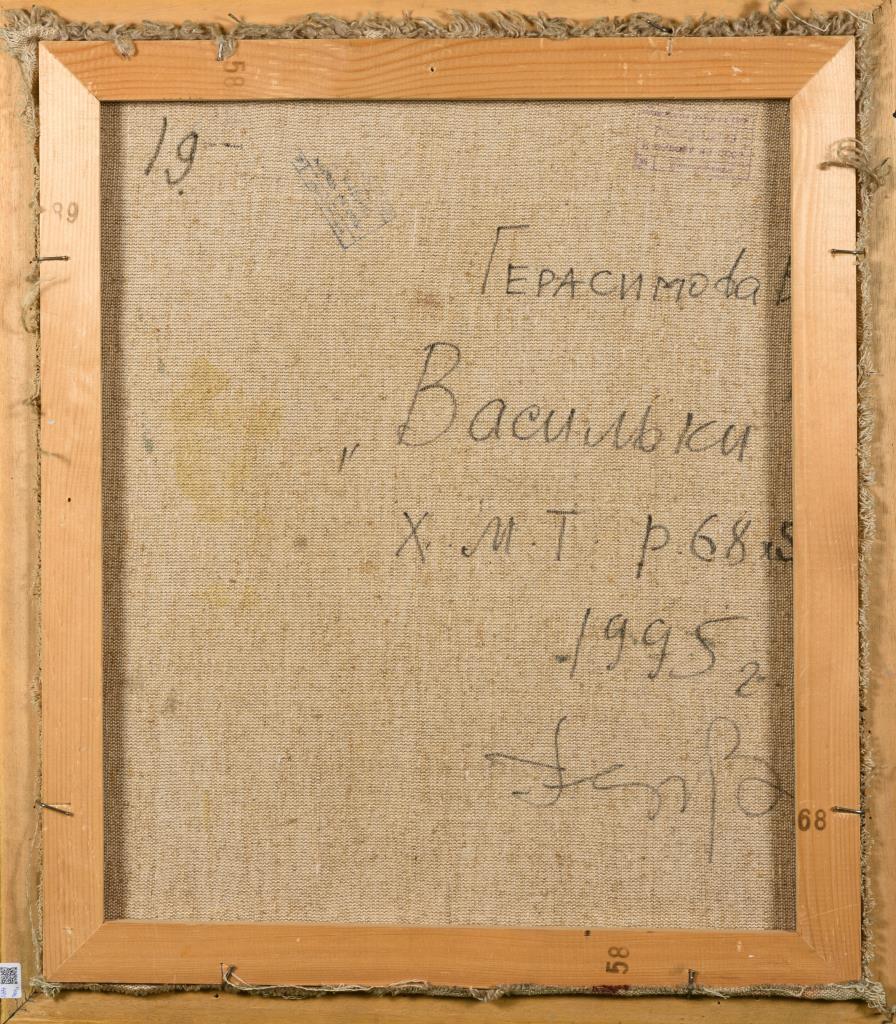 58
19-
89
Герасимова
„Васильки
Х.М.Т. р.68х5
1995 г.
68
58